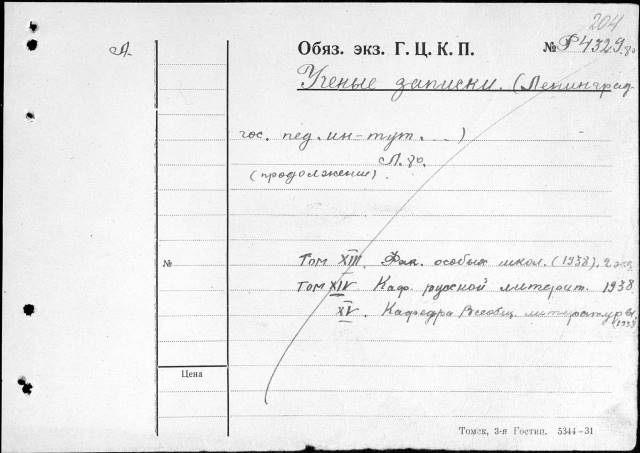 204
А.
Обяз. экз. Г. Ц. К. П. № Р4329.80
Ученые записки. (Ленинград-
гос. пед. ин-тут. ...)
Л. 80.
(продолжение)
№ Том XIII. Фак. особых школ. (1938). 2 экз.
Том XIV Каф. русской литерат. 1938
XV. Кафедра Всеобщ. литературы.
(1938
Цена
Томск, 3-я Гостип. 5344—31